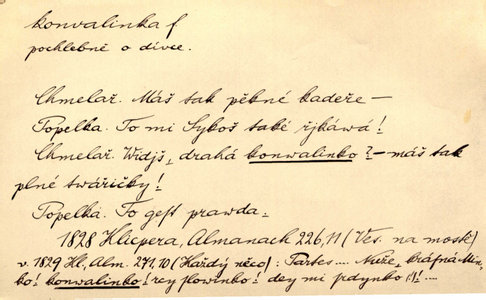 konvalinka f
pochlebně o dívce.
Chmelař. Máš tak pěkné kadeře –
Popelka. To mi Sykoš také řjkává!
Chmelař. Widjš, drahá konwalinko? – máš tak
plné twářičky!
Popelka. To gest prawda.
1828 Klicpera, Almanach 226,11 (Ves. na mostě)
v. 1829 Kl, Alm. 271,10 (Každý něco): Tartes.... krásná Min-
ko! konwalinko! rey flowinko! dey mi prdynko (!)....